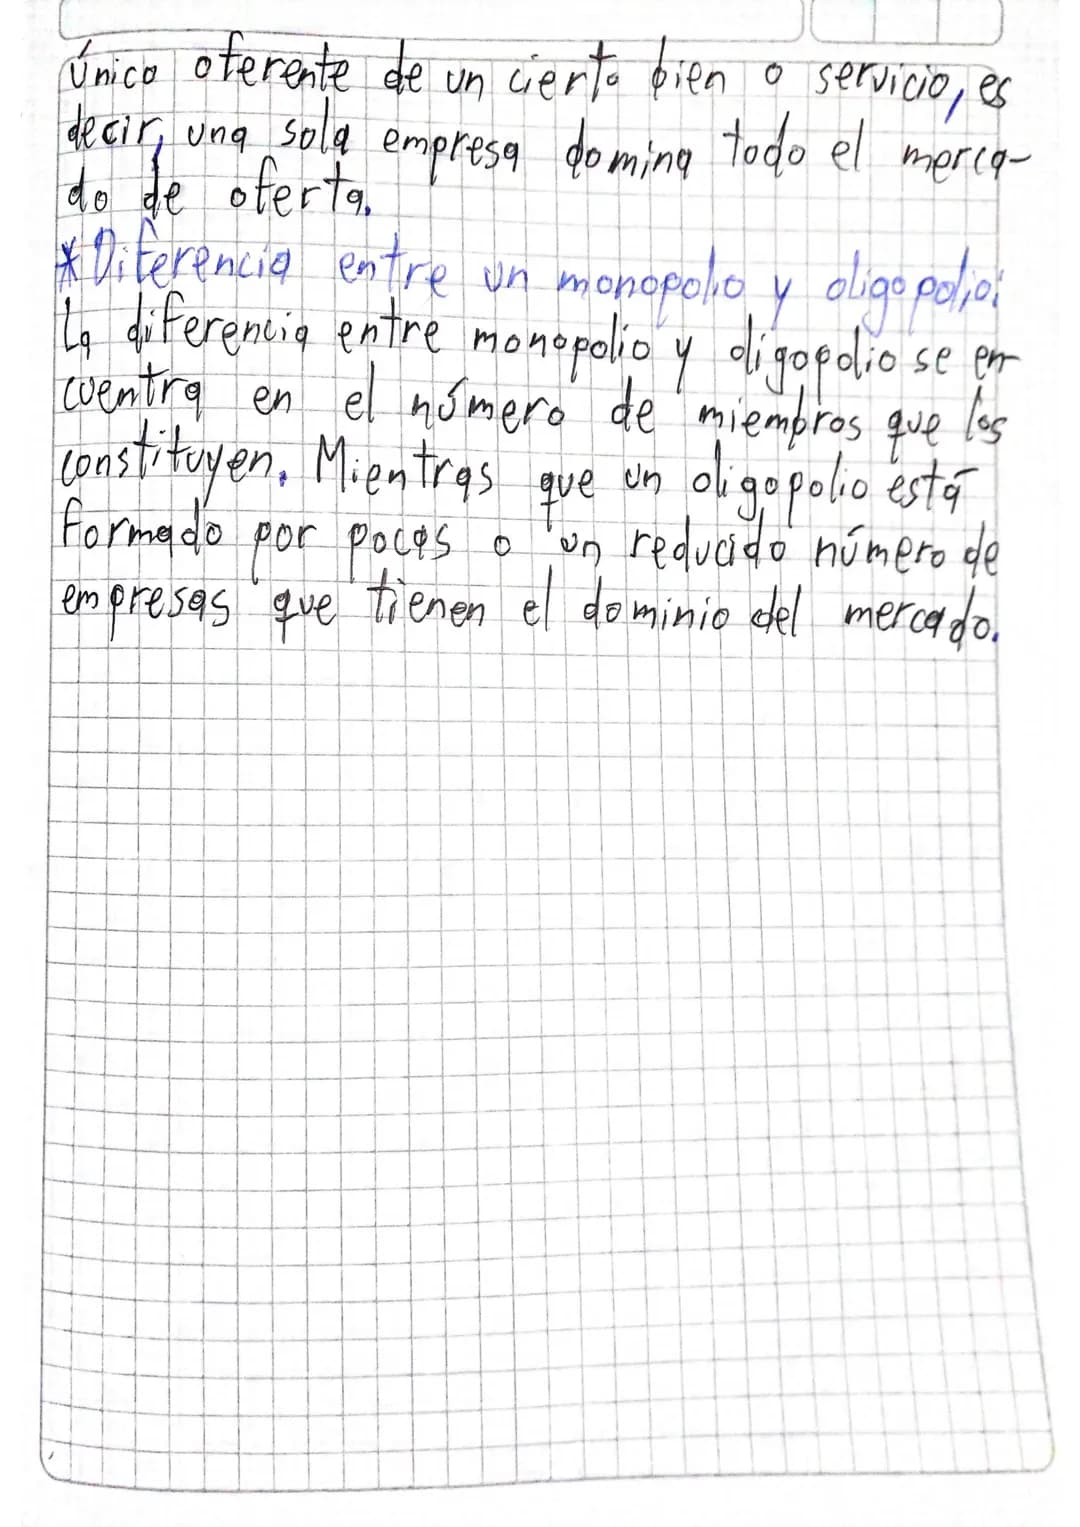 único oferente de un cierto bien o servicio, es
decir, una sola empresa domina todo el merca-
do de oferta.
* Diferencia entre un monopolio y oligopolio:
La diferencia entre monopolio y oligopolio se en
cuentra en el número de miembros que los
constituyen. Mientras que un oligopolio está
formado por pocas o un reducido número de
empresas que tienen el dominio del mercado.